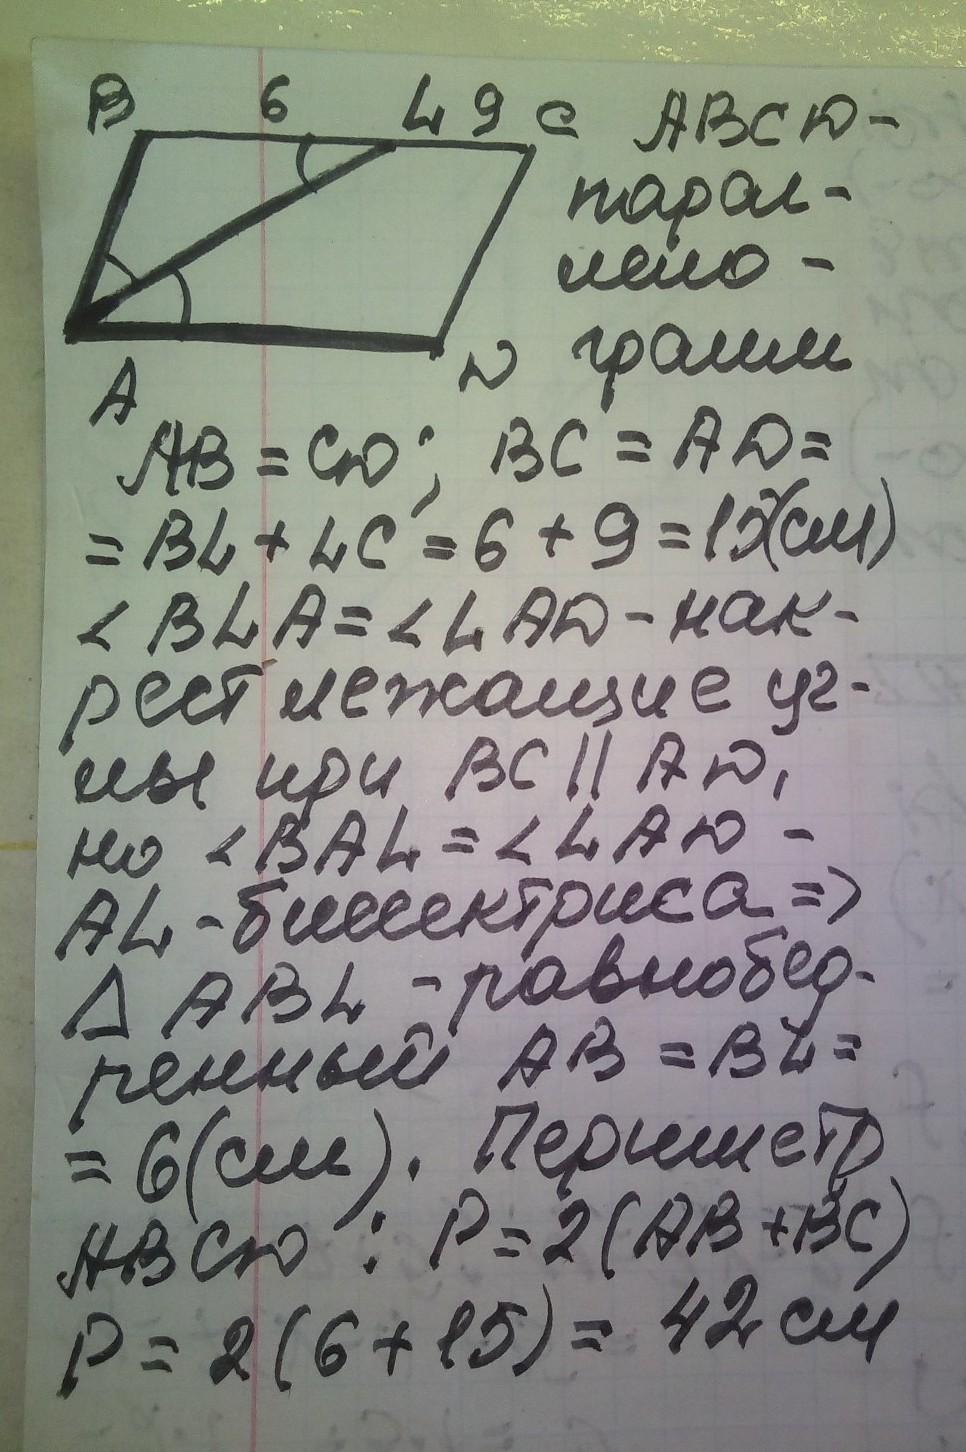 B 6 L 9 C ABCD-
парал-
лело-
грамм
A D
AB = CD; BC = AD =
= BL + LC = 6 + 9 = 15(см)
< BLA = < LAD - нак-
рест лежащие уг-
лы при BC || AD,
но < BAL = < LAD -
AL - биссектриса =>
Δ ABL - равнобед-
ренный AB = BL =
= 6(см). Периметр
ABCD : P = 2(AB+BC)
P = 2(6+15) = 42 см